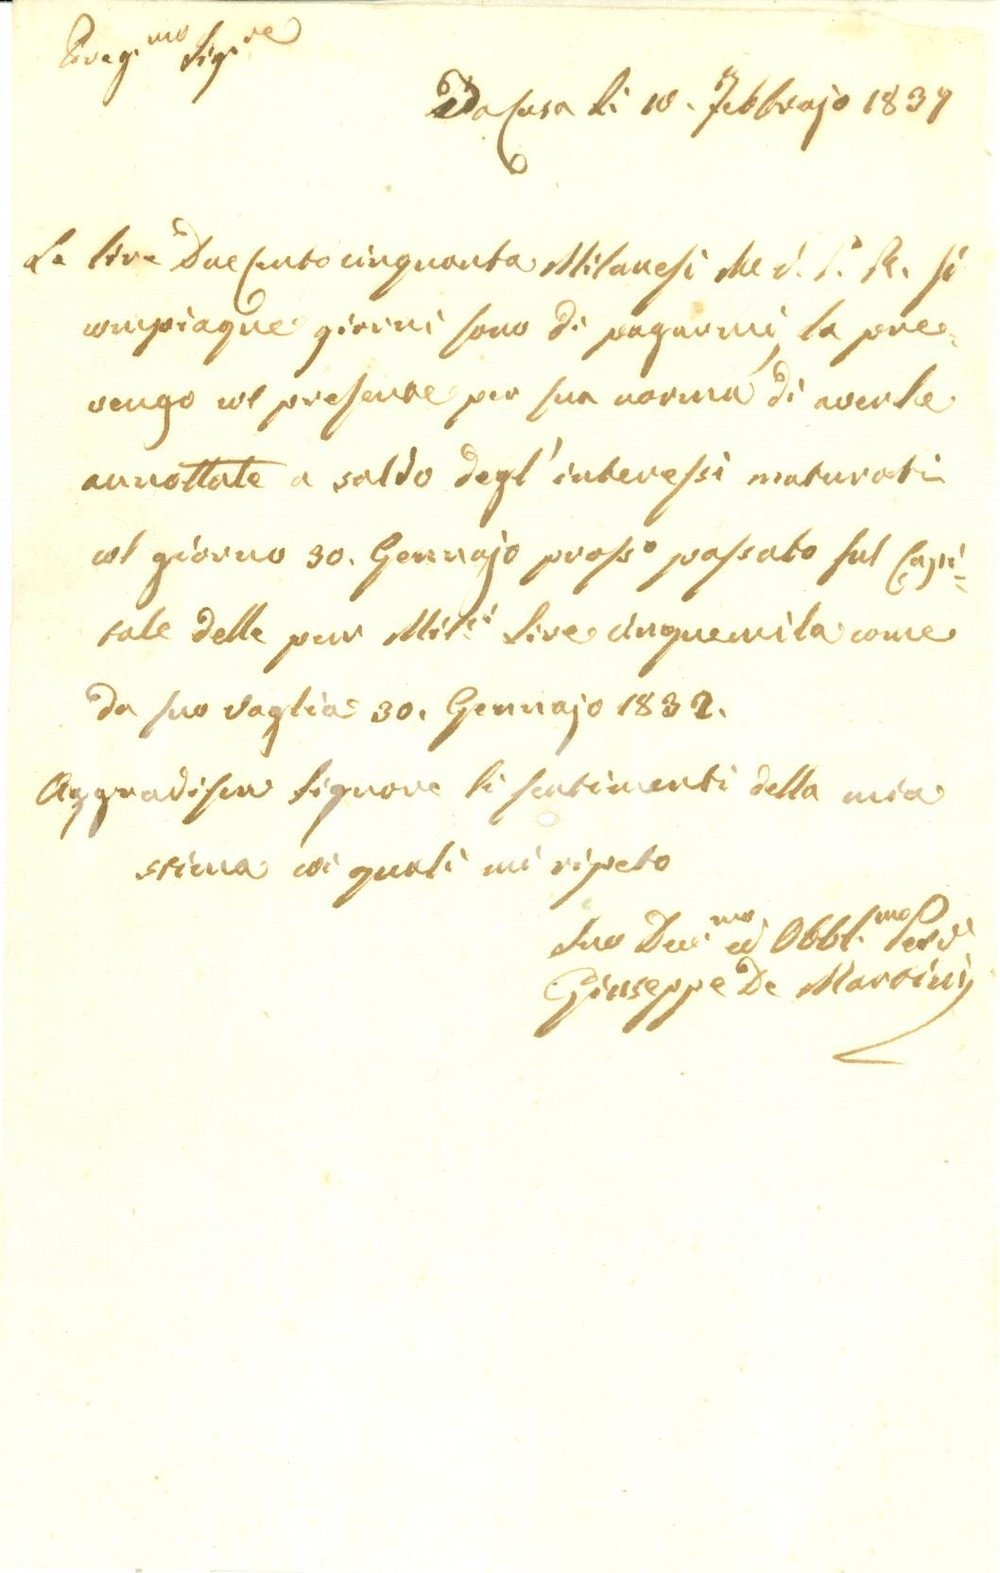 Preg.mo Sig.re
Da Casa li 10. Febbrajo 1837
Le lire Duecento cinquanta Milanesi che V. S. R. si
compiaque giorni sono di pagarmi, la pre=
vengo col presente per sua norma di averle
annottate a saldo degl'interessi maturati
col giorno 30. Gennajo pross.o passato sul Capi=
tale delle pur Mil.si Lire cinquemila come
da suo vaglia 30. Gennajo 1832.
Aggradisca Signore li sentimenti della mia
stima coi quali mi ripeto
Suo Dev.mo ed Obbl.mo Serv.
Giuseppe De Martini